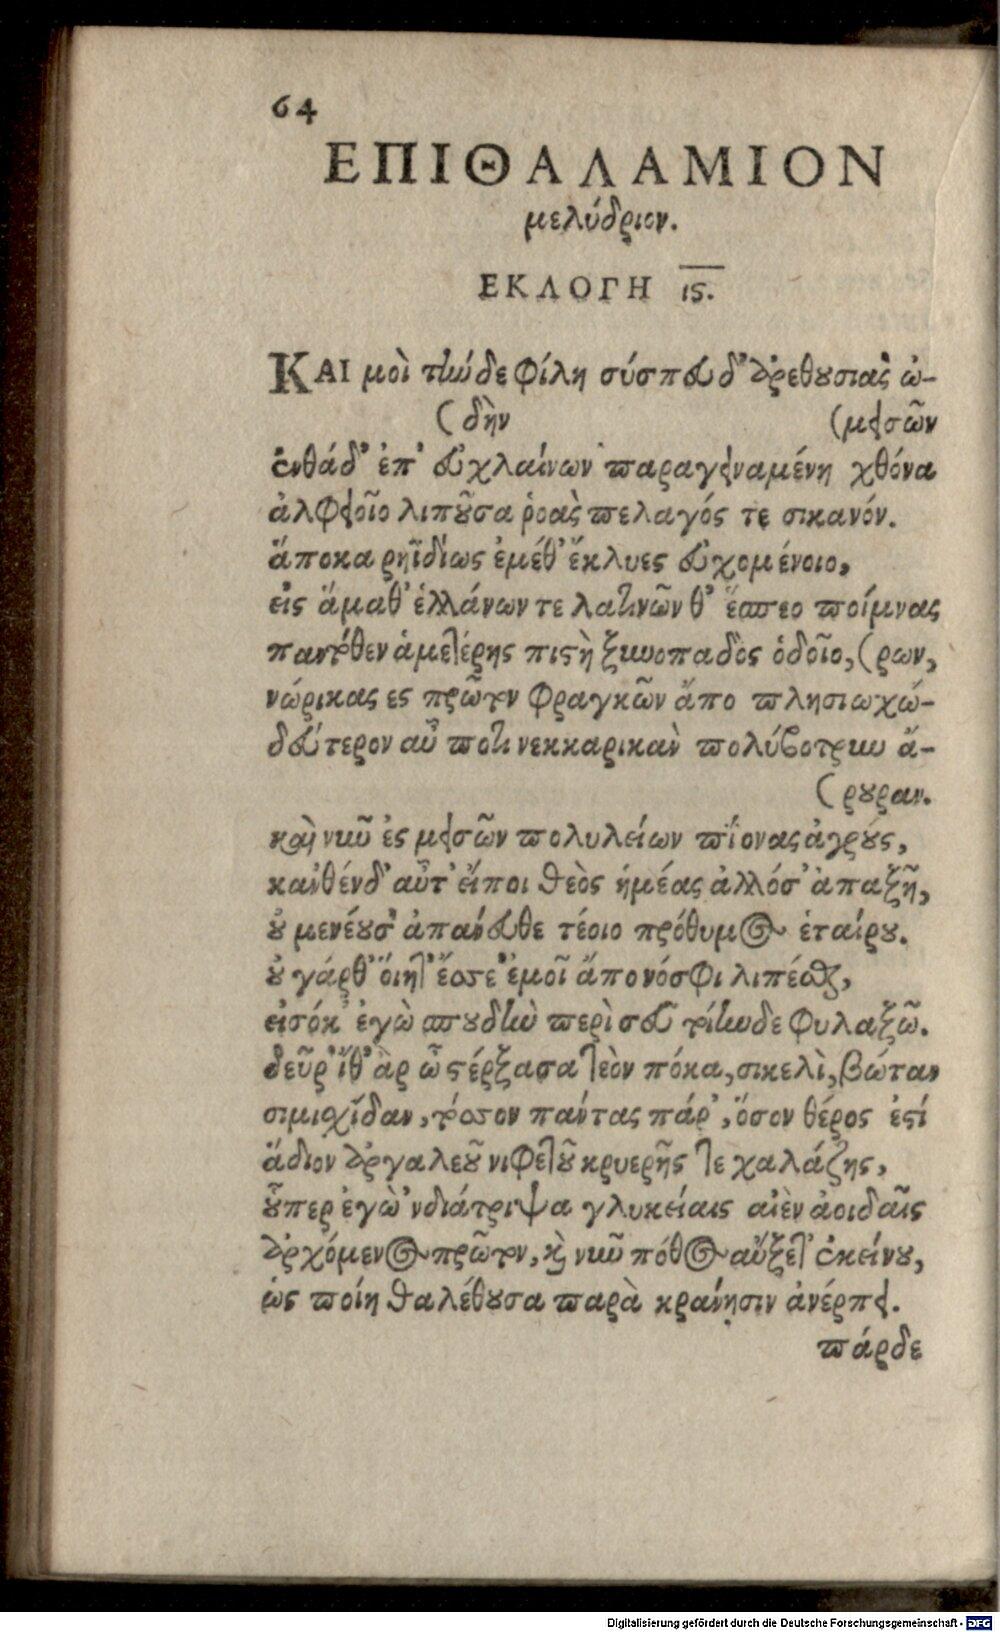 64
ΕΠΙΘΑΛΑΜΙΟΝ
μελύδριον.
ΕΚΛΟΓΗ ις.
ΚΑΙ μοὶ τήνδε φίλη σύσπευδ' ἀρεθουσιὰς ὠ-
(δὴν (μεισῶν
ἐνθάδ' ἐπ' εὐχλαίνων παραγειναμένη χθόνα
ἀλφειοῖο λιποῦσα ῥοὰς πελαγός τε σικανόν.
ἄποκα ρηϊδίως ἐμέθ' ἔκλυες εὐχομένοιο,
εἰς ἅμαθ' ἑλλάνων τε λατινῶν θ' ἕσπεο ποίμνας
παντόθεν ἁμετέρης πιστὴ ξυνοπαδὸς ὁδοῖο, (ρων,
νώρικας ες πρῶτον φραγκῶν ἄπο πλησιωχώ-
δεύτερον αὖ ποτι νεκκαρικὰν πολύβοτρυν ἄ-
(ρουραν.
καὶ νῦν ἐς μεισῶν πολυλείων πίονας ἀγρούς,
κᾀνθένδ' αὖτ' εἴποι θεὸς ἡμέας ἀλλόσ' ἀπαξῇ,
οὐ μενέουσ' ἀπαίνευθε τέοιο πρόθυμος ἑταίρου.
οὐ γάρ θ' ὅιητ' ἔστε ἐμοῖ ἄπο νόσφι λιπέσθαι,
εἰσόκ' ἐγὼ σπουδὴν περὶ σεῦ τίηνδε φυλαξῶ.
δεῦρ' ἴθ' ἂρ ὧς ἐρξασα τεὸν πόκα, σικελὶ, βώταν
σιμιχίδαν, τόσον πάντας πάρ', ὅσον θέρος ἐστί
ἅδιον ἀργαλεοῦ νιφετοῦ κρυερῆς τε χαλάζης,
οὗπερ ἐγὼ 'νδιάτριψα γλυκείαις αἰὲν ἀοιδαῖς
ἀρχόμενος πρῶτον, καὶ νῦν πόθος αὔξετ' ἐκείνου,
ὡς ποίη θαλέθουσα παρὰ κραίνησιν ἀνέρπει.
πάρδε
Digitalisierung gefördert durch die Deutsche Forschungsgemeinschaft - DFG